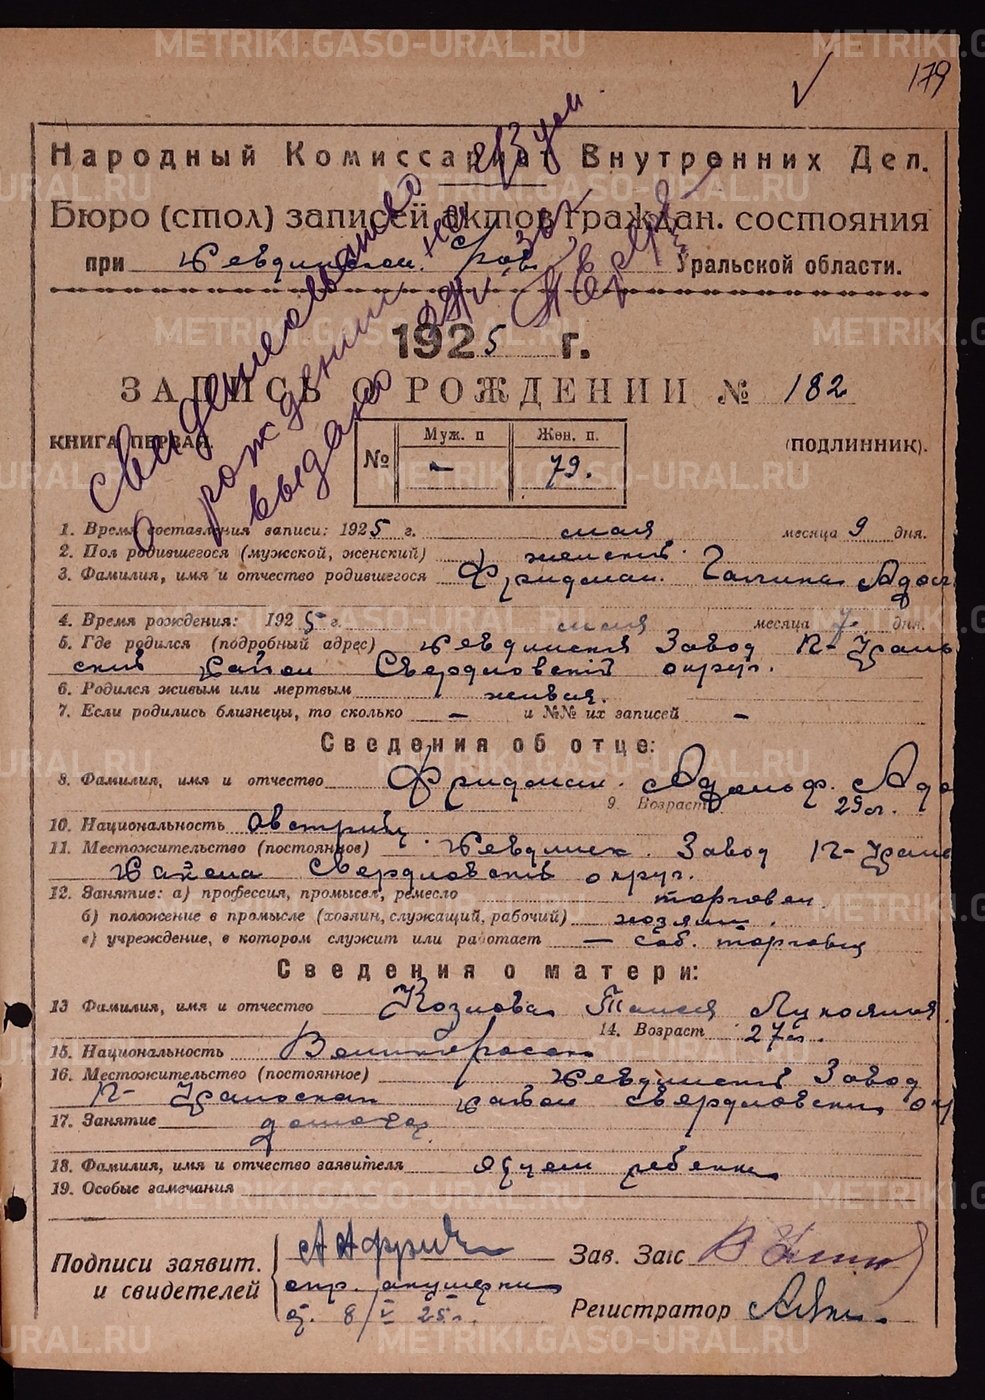 179
Народный Комиссариат Внутренних Дел.
Бюро (стол) записей актов граждан. состояния
при Уральской области.
Свидетельство
о рождении на
выдано
1925 г.
ЗАПИСЬ О РОЖДЕНИИ № 182
КНИГА ПЕРВАЯ.
(ПОДЛИННИК).
№ Муж. п Жен. п.
- 79.
1. Время составления записи: 1925 г. мая месяца 9 дня.
2. Пол родившегося (мужской, женский) женский.
3. Фамилия, имя и отчество родившегося Фридман. Галина Адол
4. Время рождения: 1925 г. мая месяца 7 дня.
5. Где родился (подробный адрес) Невдинский Завод П-Ураль
ский район Свердловский округ.
6. Родился живым или мертвым живая.
7. Если родились близнецы, то сколько - и №№ их записей -
Сведения об отце:
8. Фамилия, имя и отчество Фридман. Адольф. Адо
9. Возраст 29 л.
10. Национальность Австриец
11. Местожительство (постоянное) Завод П-Ураль
Района Свердловский округ.
12. Занятие: а) профессия, промысел, ремесло торговец
б) положение в промысле (хозяин, служащий, рабочий) хозяин.
в) учреждение, в котором служит или работает - соб. торговец
Сведения о матери:
13 Фамилия, имя и отчество Козлова Таисия
14. Возраст 27 л.
15. Национальность
16. Местожительство (постоянное) Завод
П-Уральский район Свердловский ок
17. Занятие домохоз.
18. Фамилия, имя и отчество заявителя отцем ребенка
19. Особые замечания
Подписи заявит.
и свидетелей
спр. акушерки
от 8/V 25 г.
Зав. Загс
Регистратор
METRIKI.GASO-URAL.RU